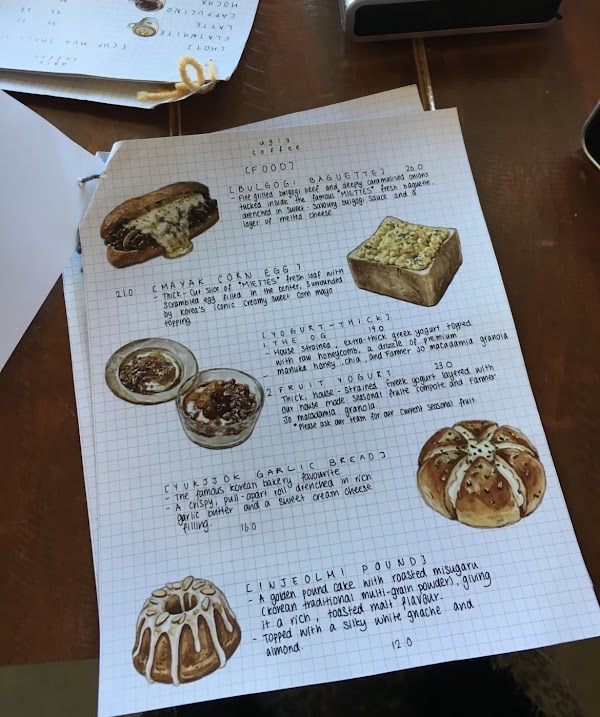 MOCHA
CAPPUCINO
LATTE
FLATWHITE
[HOT]
ugly
coffee
[FOOD]
[BULGOGI BAGUETTE] 26.0
- Fire grilled bulgogi beef and deeply caramalised onions
tucked inside the famous "MIETTES" fresh baguette.
drenched in sweet. Savoury bulgogi sauce and a
layer of melted cheese.
21.0 [MAYAK CORN EGG]
- Thick-cut slice of "MIETTES" fresh loaf with
scrambled egg filled in the center, surrounded
by Korea's iconic creamy sweet corn mayo
topping.
[YOGURT-THICK]
1. THE OG 19.0
- House strained, extra-thick greek yogurt topped
with raw honeycomb, a drizzle of premium
manuka honey, chia, and Farmer Jo macadamia granola
2. FRUIT YOGURT 23.0
Thick, house-strained Greek yogurt layered with
our house made seasonal fruite compote and Farmer
Jo macadamia granola
*Please ask our team for our current seasonal fruit
[YUKJJOK GARLIC BREAD]
- The famous korean bakery favourite
- A crispy, pull-apart roll drenched in rich
garlic butter and a sweet cream cheese
filling. 16.0
[INJEOLMI POUND]
- A golden pound cake with roasted misugaru
(korean traditional multi-grain powder), giving
it a rich, toasted malt flavour.
- Topped with a silky white gnache and
almond. 12.0